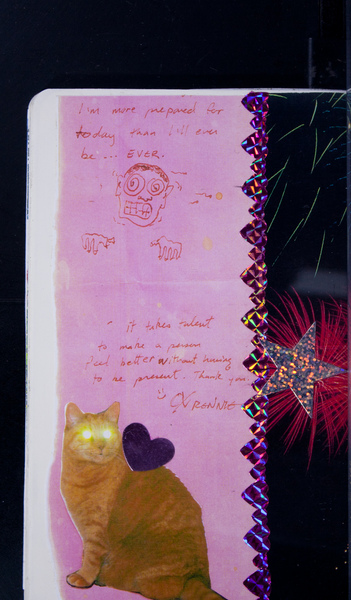 I'm more prepared for
today than I'll ever
be ... EVER.
" it takes talent
to make a person
feel better without having
to be present. Thank you
RENNIE